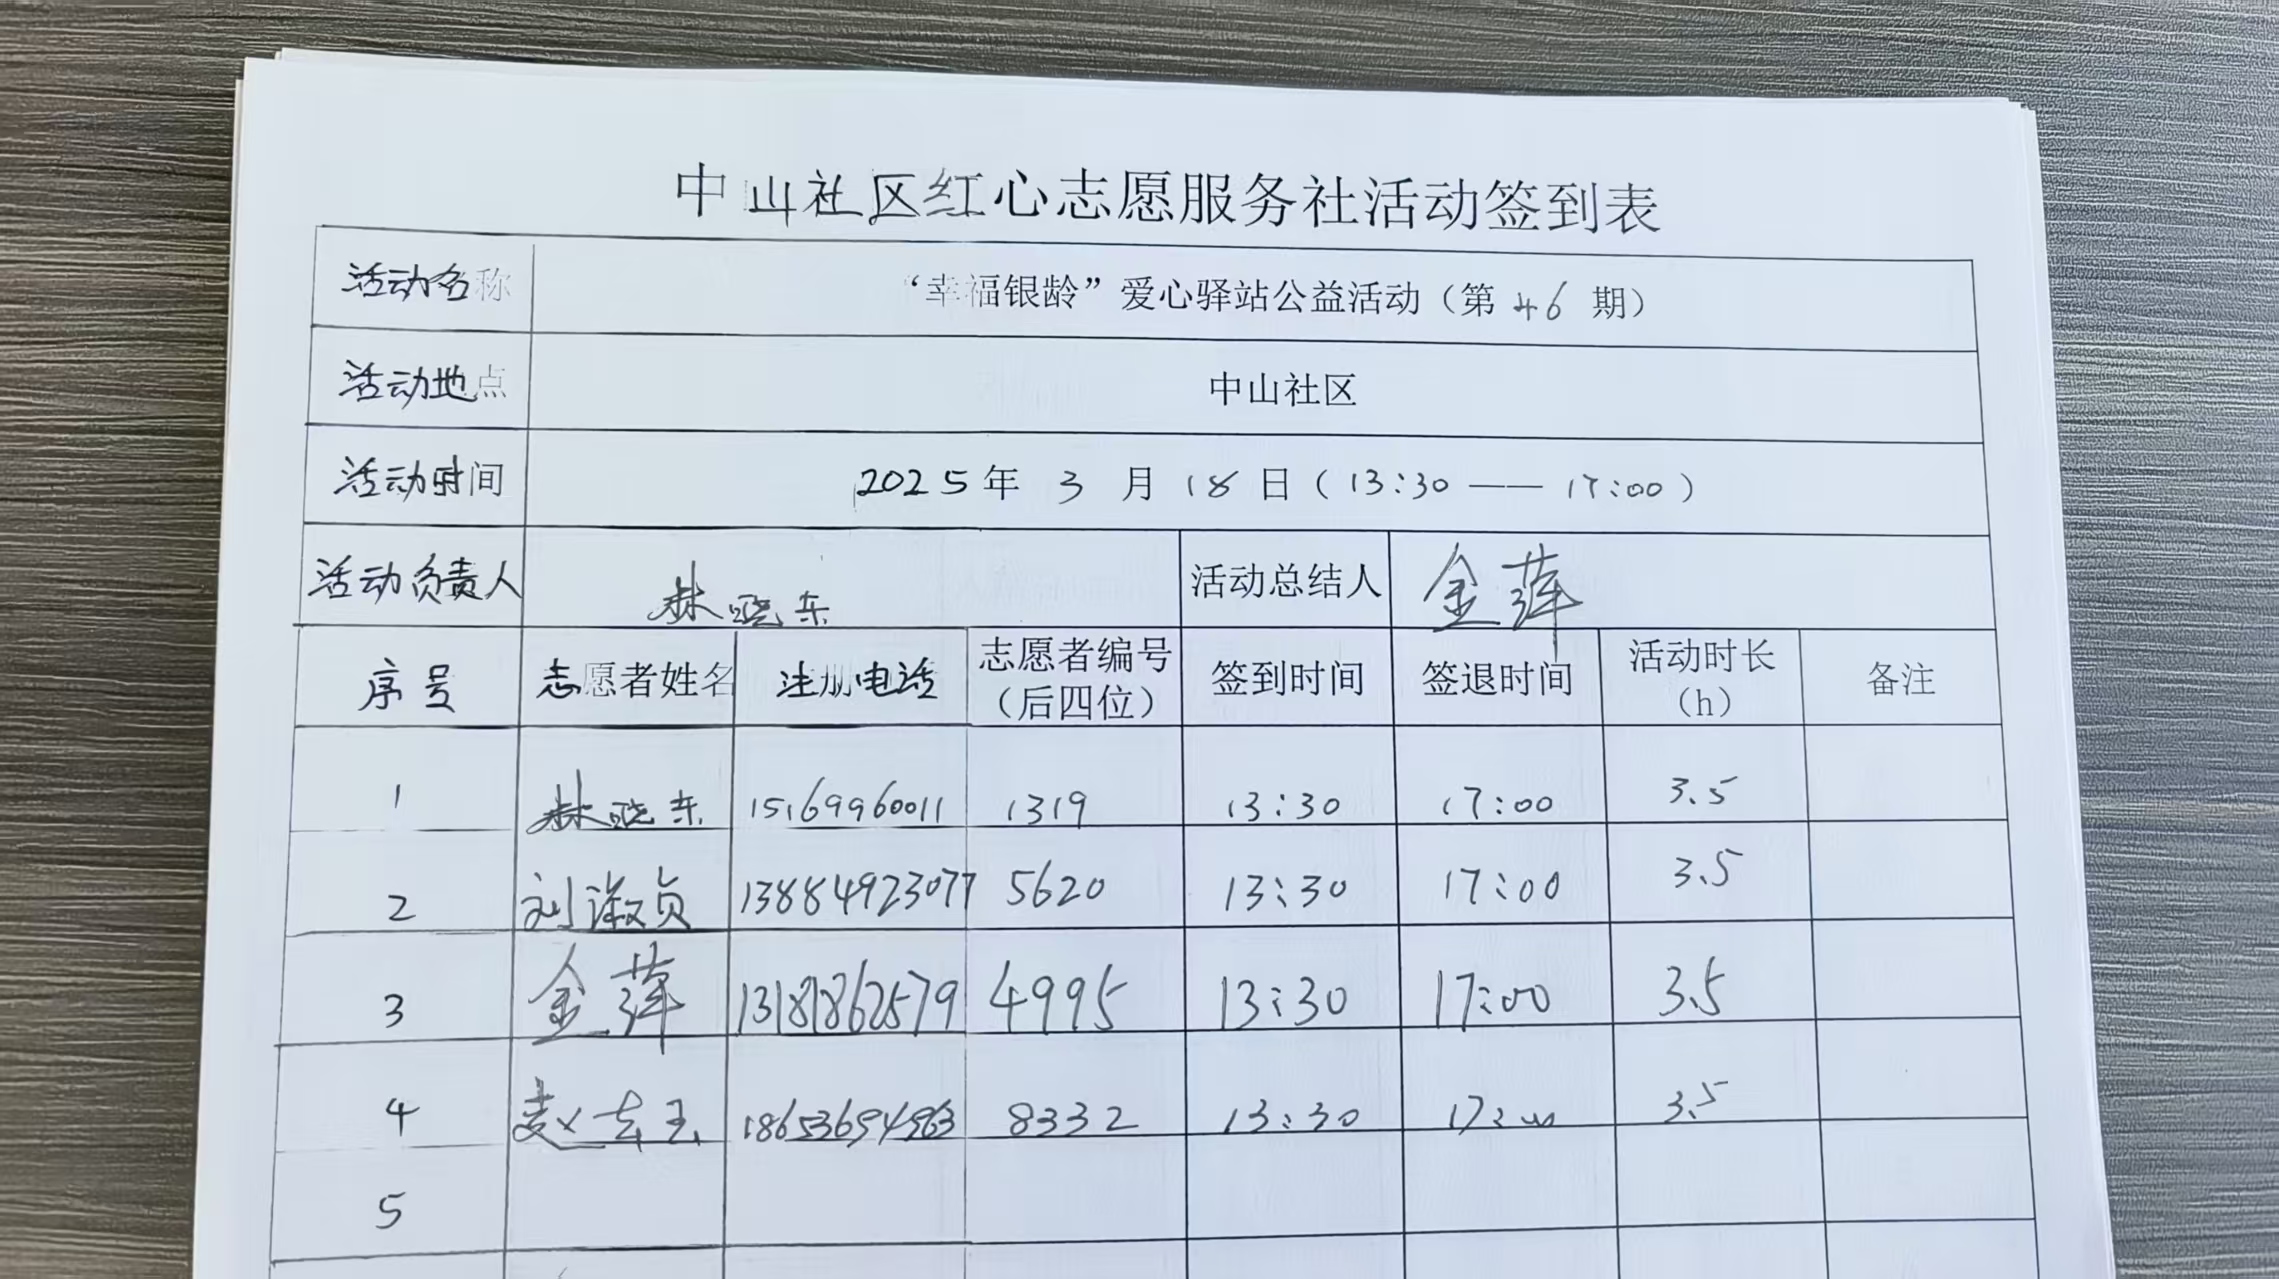 中山社区红心志愿服务社活动签到表
活动名称 “幸福银龄”爱心驿站公益活动（第 46 期）
活动地点 中山社区
活动时间 2025年 3 月 18 日（13:30 —— 17:00）
活动负责人 林晓东 活动总结人 金萍
序号 志愿者姓名 注册电话 志愿者编号（后四位） 签到时间 签退时间 活动时长（h） 备注
1 林晓东 15169960011 1319 13:30 17:00 3.5
2 刘淑贞 13884923077 5620 13:30 17:00 3.5
3 金萍 13181862579 4995 13:30 17:00 3.5
4 赵玉 8332 13:30 17:00 3.5
5